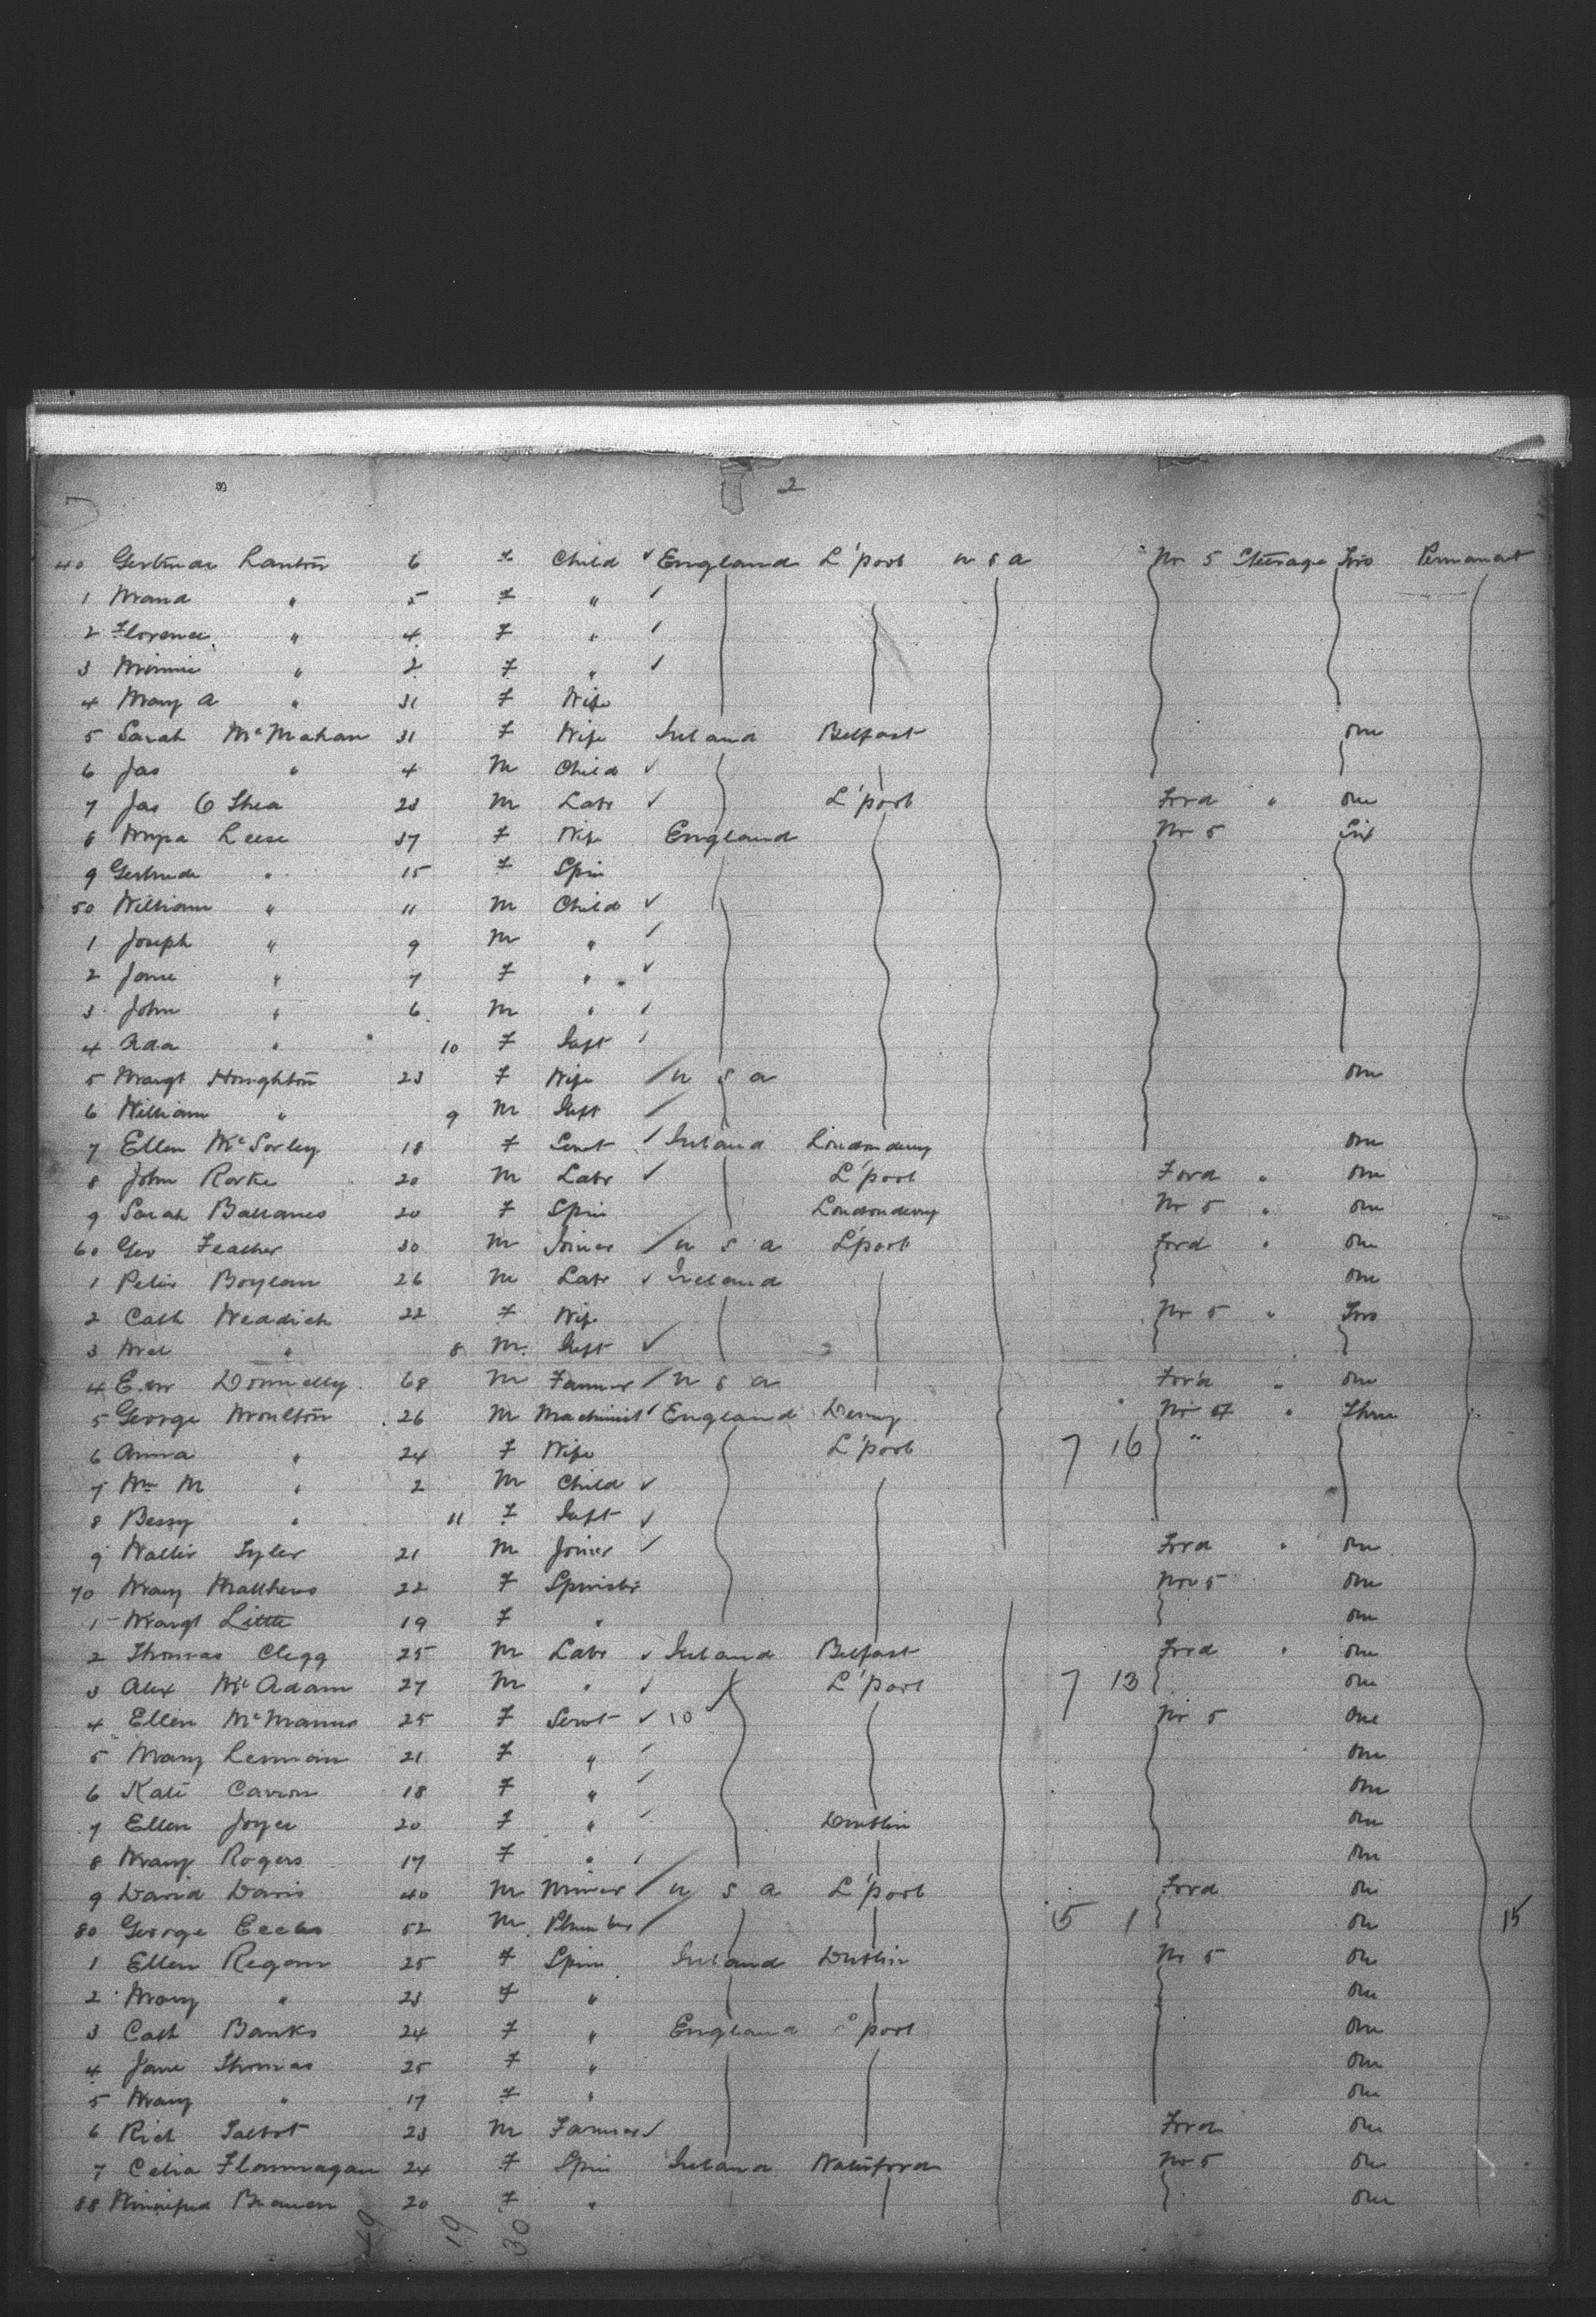 2
40 Gertrude Lanton 6 F Child ✓ England L'pool U S A Nr 5 Steerage Two Permanent
1 Maud " 5 F " ✓
2 Florence " 4 F " ✓
3 Minnie " 2 F " ✓
4 Mary A " 31 F Wife
5 Sarah McMahan 31 F Wife Ireland Belfast One
6 Jas " 4 M Child ✓
7 Jas O Shea 23 M Labr ✓ L'pool Ford " One
8 Leese 37 F Wife England Nr 5 Six
9 Gertrude " 15 F Spin
50 William " 11 M Child ✓
1 Joseph " 9 M " ✓
2 Jane " 7 F " ✓
3 John " 6 M " ✓
4 Ada " 10 F Inft ✓
5 Margt Houghton 23 F Wife / U S A One
6 William " 9 M Inft /
7 Ellen McSorley 18 F Servt ✓ Ireland Londonderry One
8 John Rorke 20 M Labr ✓ L'pool Ford " One
9 Sarah 20 F Spin Londonderry Nr 5 " One
60 Geo Feather 30 M Joiner / U S A L'pool Ford " One
1 Peter Boylan 26 M Labr ✓ Ireland One
2 Cath Weadick 22 F Wife Nr 5 " Two
3 " 8 M Inft ✓
4 Donnelly 68 M Farmer / U S A Ford " One
5 George Moulton 26 M Machinist ✓ England Derry Nr " Three
6 Anna " 24 F Wife L'pool 7 16 "
7 Wm M " 2 M Child ✓
8 Bessy " 11 F Inft ✓
9 Walter Tyler 21 M Joiner ✓ Ford " One
70 Mary Matthews 22 F Spinster Nr 5 One
1 Margt Little 19 F " One
2 Thomas Clegg 25 M Labr ✓ Ireland Belfast Ford " One
3 Alex McAdam 27 M " ✓ L'pool 7 13 One
4 Ellen McManus 25 F Servt ✓ 10 Nr 5 One
5 Mary Lennon 21 F " ✓ One
6 Kate 18 F " ✓ One
7 Ellen Joyce 20 F " ✓ Dublin One
8 Mary Rogers 17 F " ✓ One
9 David Davis 40 M Miner / U S A L'pool Ford One
80 George Eccles 52 M Plumber / 5 1 One 15
1 Ellen Regan 25 F Spin Ireland Dublin Nr 5 One
2 Mary " 23 F " One
3 Cath Banks 24 F " England L'pool One
4 Jane Thomas 25 F " One
5 Mary " 17 F " One
6 Rich Talbot 23 M Farmer ✓ Ford One
7 Celia Flannagan 24 F Spin Ireland Waterford Nr 5 One
88 Winnifred 20 F " One
49 19 30